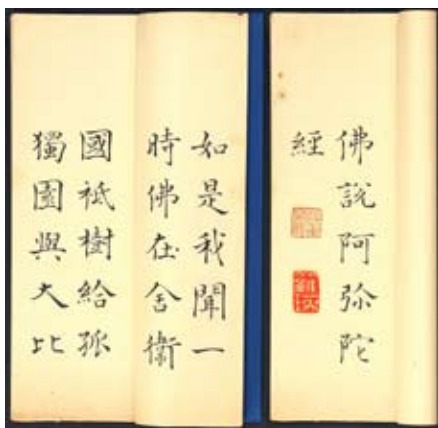 佛說阿弥陀
經
如是我聞一
時佛在舍衛
國祇樹給孤
獨園與大比